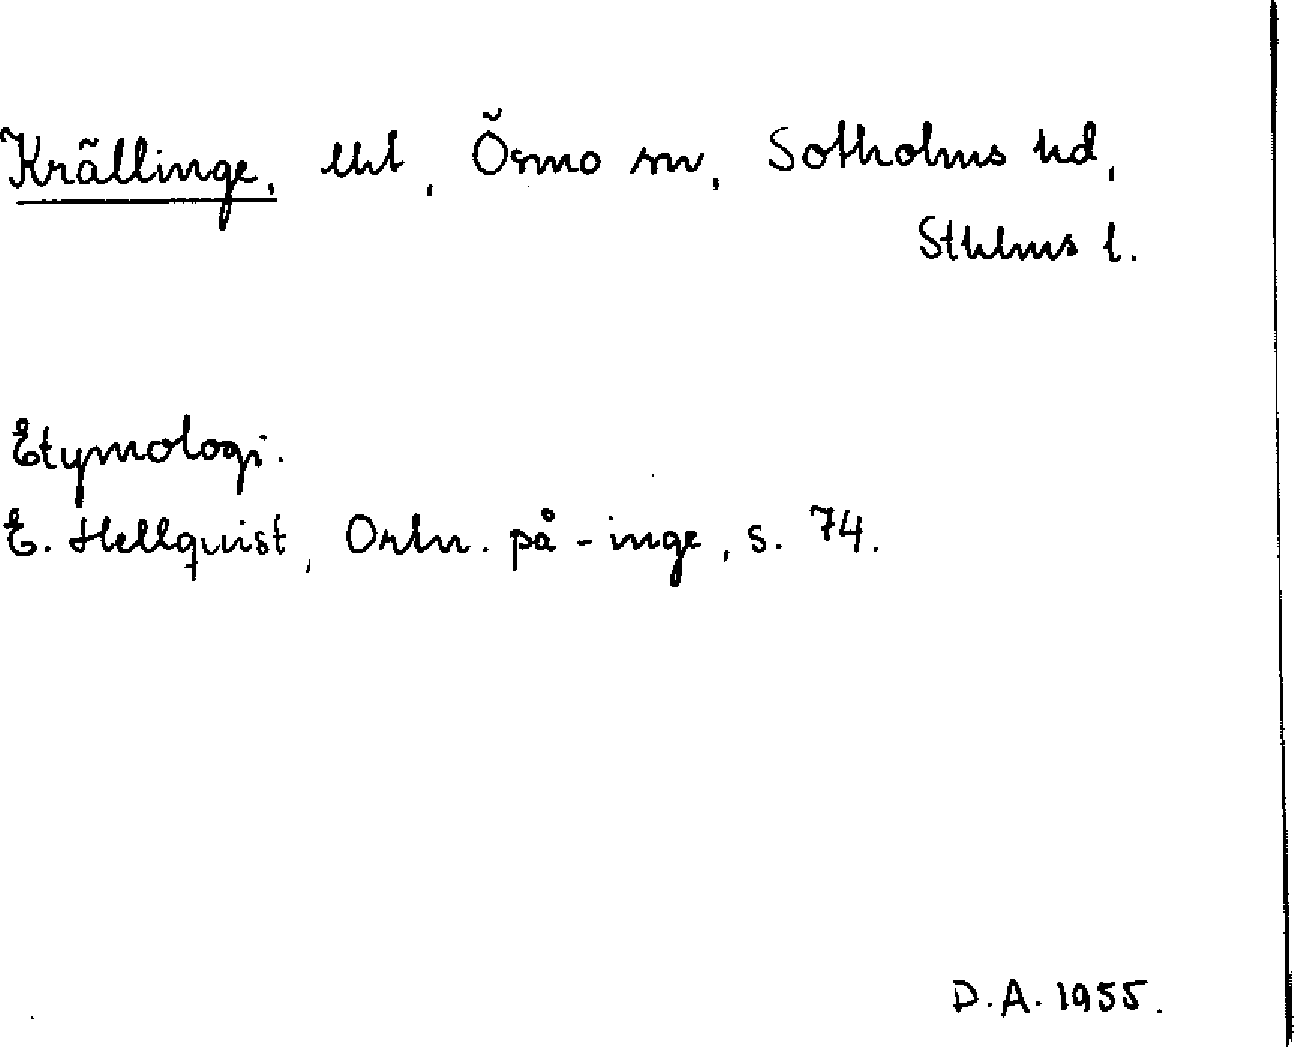 Krällinge, lht, Ösmo sn, Sotholms hd,
Sthlms l.
Etymologi.
E. Hellquist, Ortn. på -inge, s. 74.
D.A. 1955.